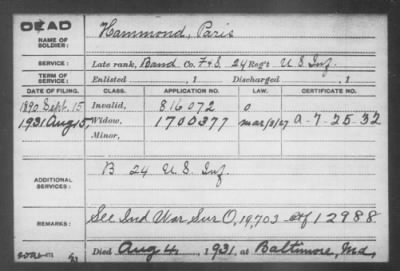 DEAD
NAME OF SOLDIER: Hammond, Paris
SERVICE: Late rank, Band Co. F+S, 24 Reg't U.S. Inf.
TERM OF SERVICE: Enlisted , 1 Discharged , 1
DATE OF FILING. CLASS. APPLICATION NO. LAW. CERTIFICATE NO.
1890 Sept. 15 Invalid, 816072 0
1931 Aug 15 Widow, 1700377 Mar/3/27 A-7-25-32
Minor,
ADDITIONAL SERVICES: B 24 U.S. Inf.
REMARKS: See Ind War Sur O, 19,703 ctf 12988
Died Aug 4, , 1931, at Baltimore, Md.